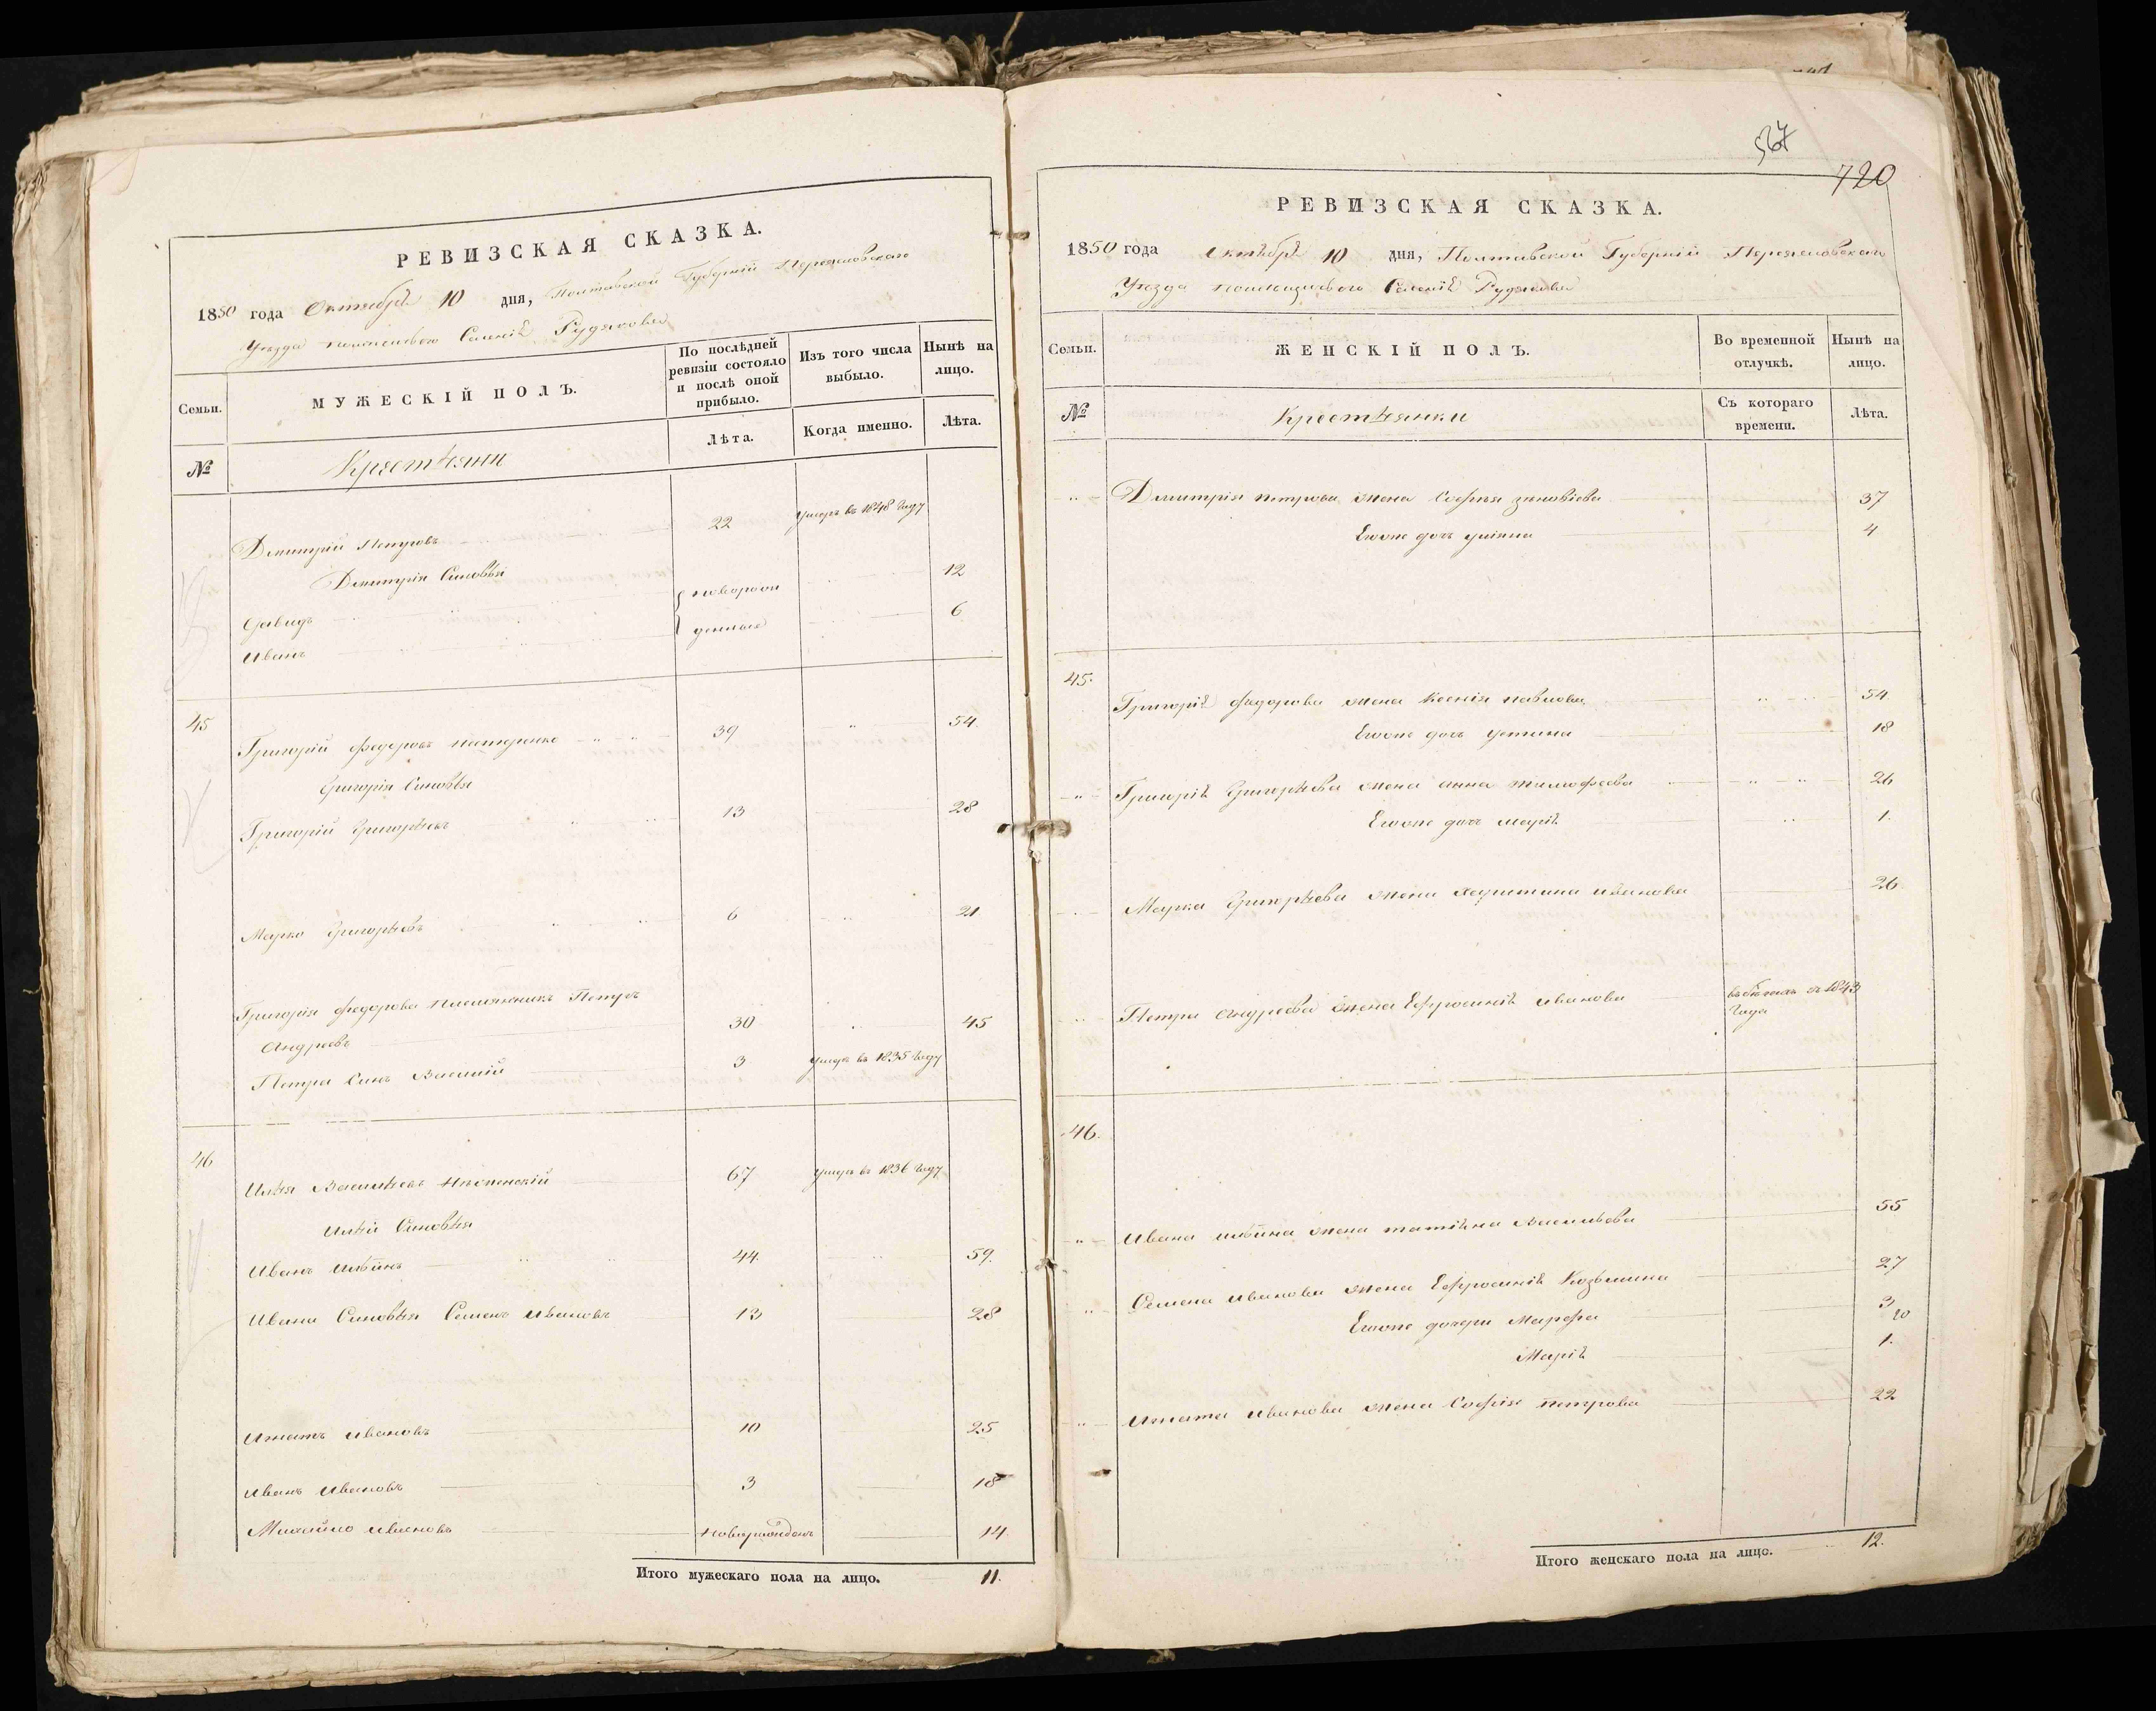 РЕВИЗСКАЯ СКАЗКА.
1850 года Октября 10 дня, Полтавской Губерніи Переяславскаго
Уезда Селенія Рудякова
Семьи.
МУЖЕСКІЙ ПОЛЪ.
По послѣдней ревизіи состояло и послѣ оной прибыло.
Изъ того числа выбыло.
Нынѣ на лицо.
№
Крестьяни
Лѣта.
Когда именно.
Лѣта.
Дмитрій Петровъ 22 умеръ въ 1848 году
Дмитрія Сыновья
Давидъ новорож 12
Иванъ денные 6
45
Григорій Федоровъ Нестеренко 39 54.
Григорія Сыновья
Григорій Григорьевъ 13 28
Марко Григорьевъ 6 21
Григорія Федорова племянникъ Петръ
Андреевъ 30 45
Петра Сынъ Василій 3 умеръ въ 1835 году
46
Илья Васильевъ 67 умеръ въ 1836 году
Ильи Сыновья
Иванъ Ильинъ 44. 59.
Ивана Сыновья Семенъ Ивановъ 13 28
Игнатъ Ивановъ 10 25
Иванъ Ивановъ 3 18
Михайло Ивановъ новорожденъ 14.
Итого мужескаго пола на лицо. 11.
567
720
РЕВИЗСКАЯ СКАЗКА.
1850 года Октября 10 дня, Полтавской Губерніи Переяславскаго
Уезда Селенія Рудякова
Семьи.
ЖЕНСКІЙ ПОЛЪ.
Во временной отлучкѣ.
Нынѣ на лицо.
№
Крестьянки
Съ котораго времени.
Лѣта.
Дмитрія Петрова жена Софья Зиновіева 37
Егоже дочь Уліяна 4
45.
Григорія Федорова жена Ксенія Павлова 54.
Егоже дочь Устина 18
Григорія Григорьева жена Анна Тимофеева 26
Егоже дочь Марія 1.
Марка Григорьева жена Харитина Иванова 26.
Петра Андреева жена Ефросинія Иванова въ бегахъ с 1843
года
46.
Ивана Ильина жена Татіяна Васильева 55
Семена Иванова жена Ефросинія Козьмина 27
Егоже дочери Марфа 3
Марія 1.
Игната Иванова жена Софія Петрова 22
Итого женскаго пола на лицо. 12.